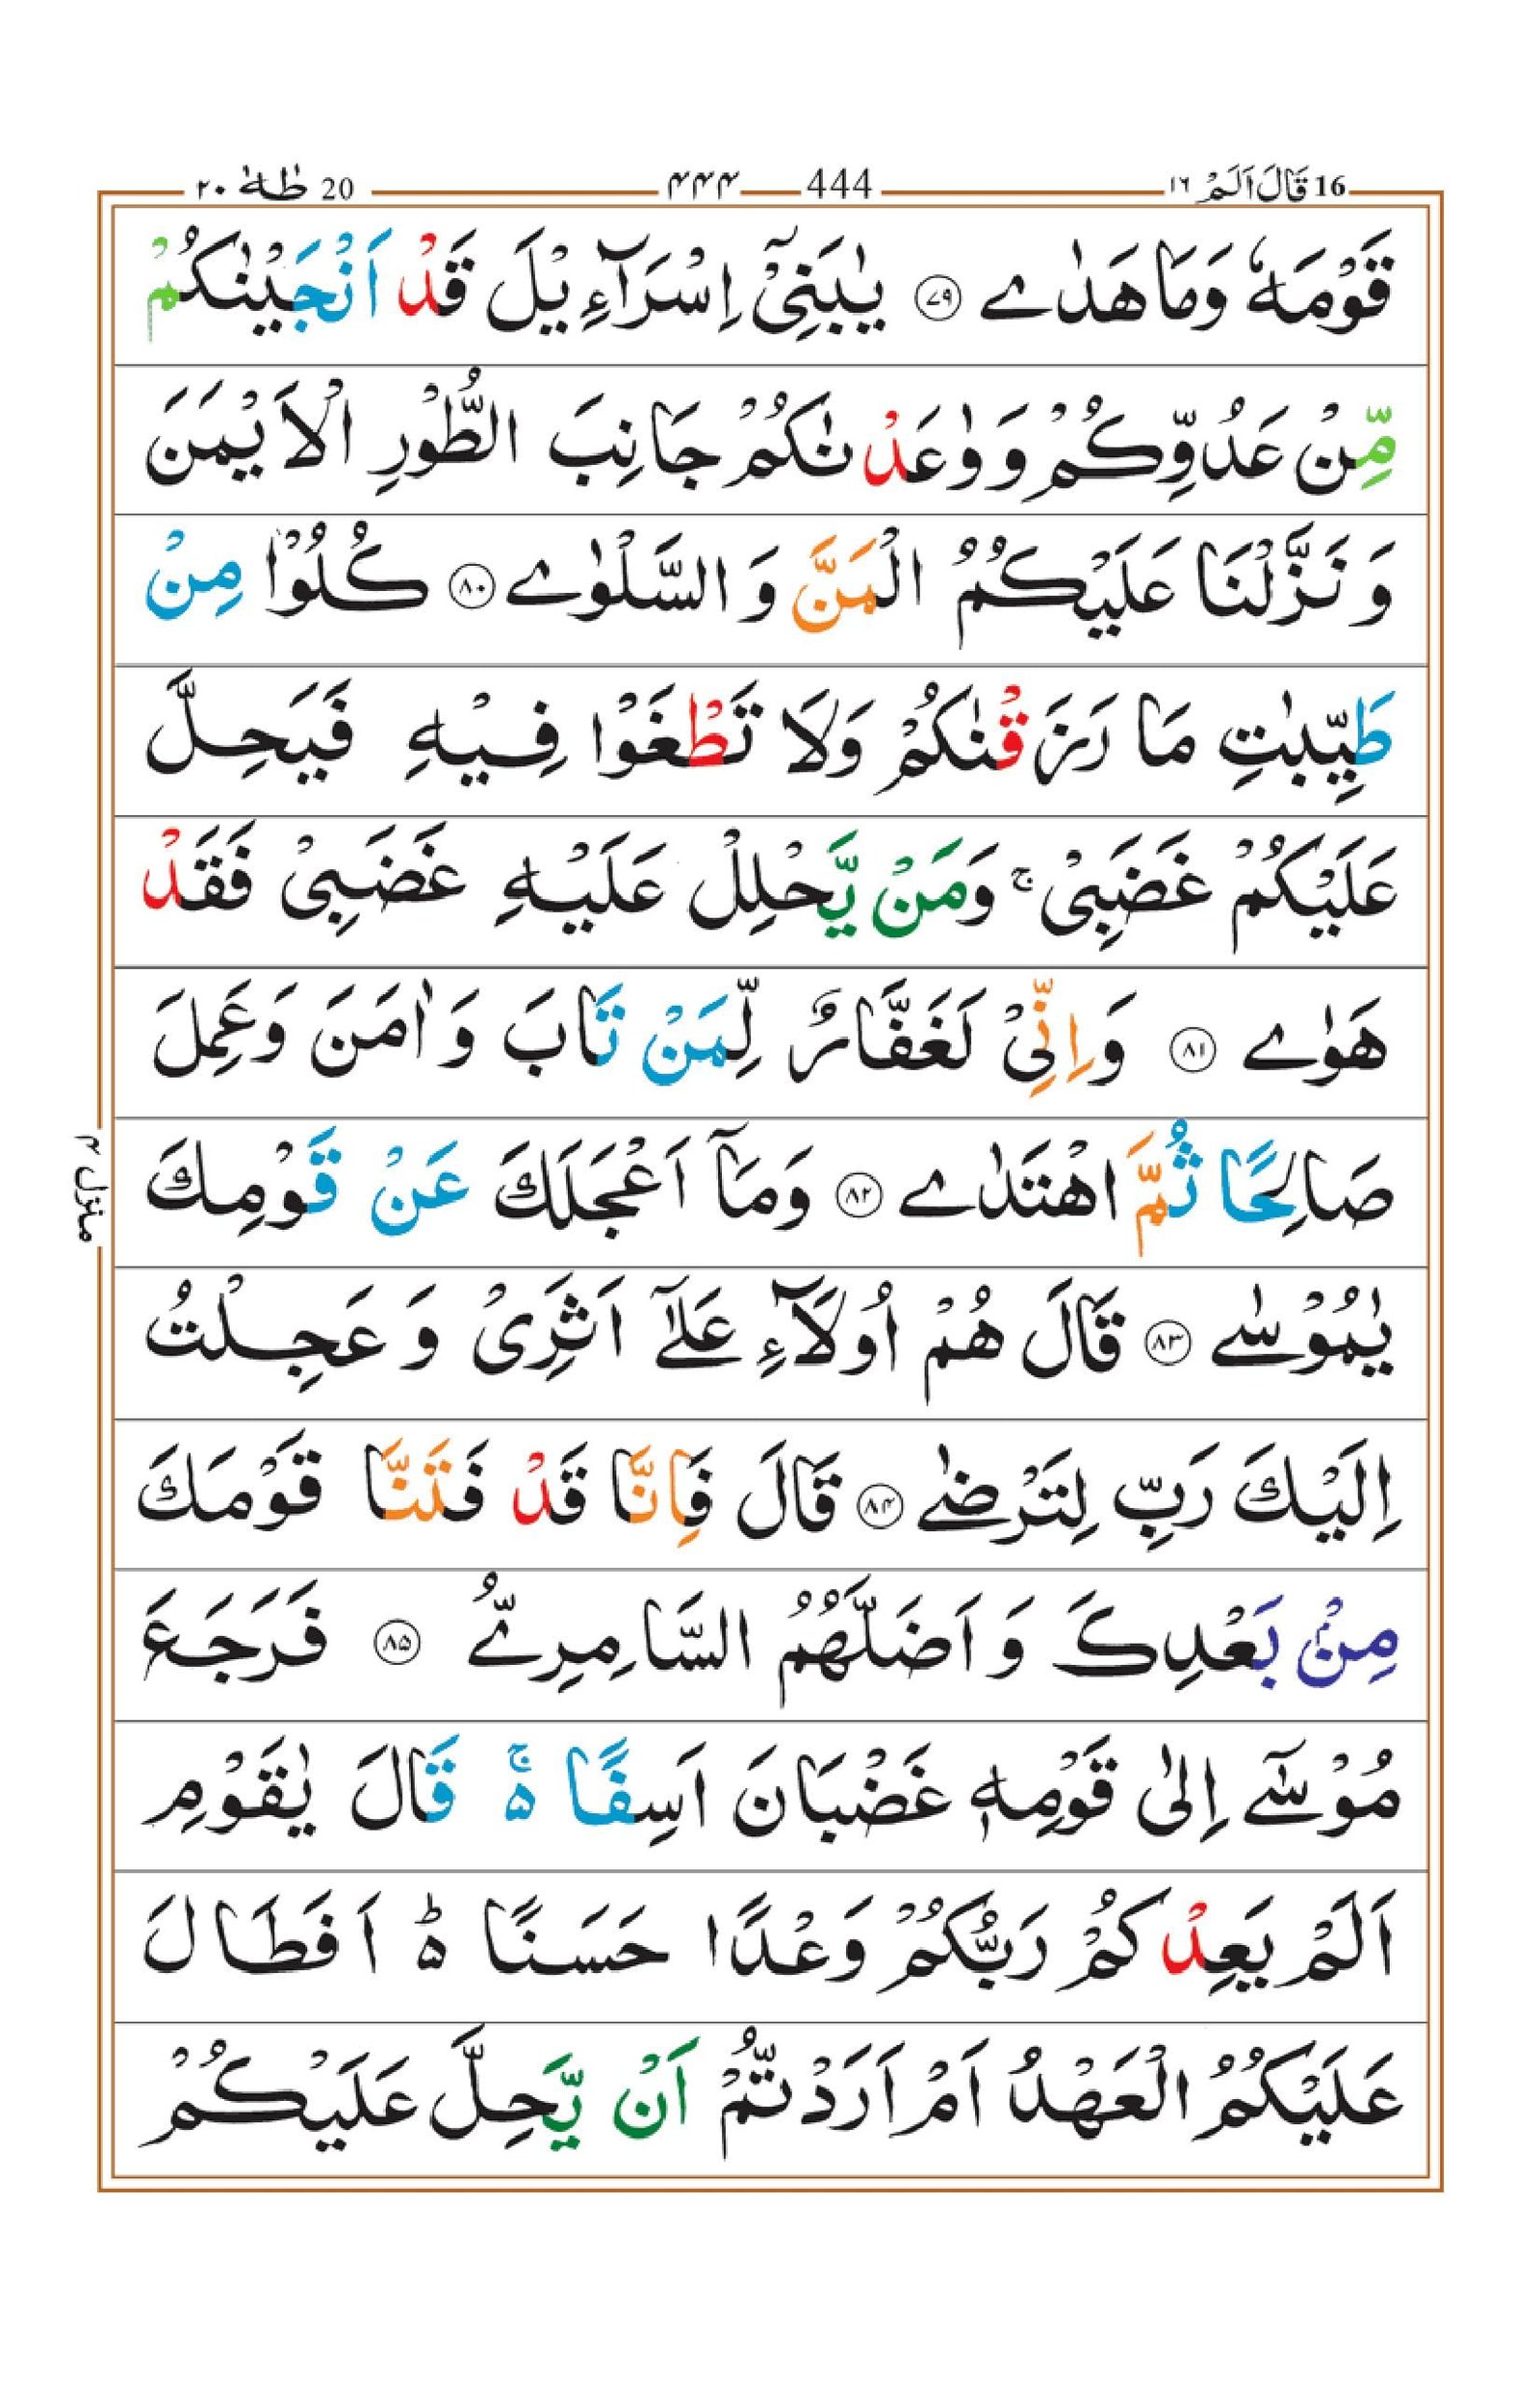 16 قَالَ اَلَمْ ١٦ 444 ۴۴۴ 20 طٰهٰ ٢٠
قَوْمَهٗ وَمَا هَدٰى ﴿۷۹﴾ يٰبَنِىْٓ اِسْرَآءِيْلَ قَدْ اَنْجَيْنٰكُمْ
مِّنْ عَدُوِّكُمْ وَ وٰعَدْنٰكُمْ جَانِبَ الطُّوْرِ الْاَيْمَنَ
وَ نَزَّلْنَا عَلَيْكُمُ الْمَنَّ وَ السَّلْوٰى ﴿۸۰﴾ كُلُوْا مِنْ
طَيِّبٰتِ مَا رَزَقْنٰكُمْ وَلَا تَطْغَوْا فِيْهِ فَيَحِلَّ
عَلَيْكُمْ غَضَبِىْ ۚ وَمَنْ يَّحْلِلْ عَلَيْهِ غَضَبِىْ فَقَدْ
هَوٰى ﴿۸۱﴾ وَاِنِّىْ لَغَفَّارٌ لِّمَنْ تَابَ وَاٰمَنَ وَعَمِلَ
صَالِحًا ثُمَّ اهْتَدٰى ﴿۸۲﴾ وَمَآ اَعْجَلَكَ عَنْ قَوْمِكَ
يٰمُوْسٰى ﴿۸۳﴾ قَالَ هُمْ اُولَآءِ عَلٰٓى اَثَرِىْ وَ عَجِلْتُ
اِلَيْكَ رَبِّ لِتَرْضٰى ﴿۸۴﴾ قَالَ فَاِنَّا قَدْ فَتَنَّا قَوْمَكَ
مِنْۢ بَعْدِكَ وَ اَضَلَّهُمُ السَّامِرِىُّ ﴿۸۵﴾ فَرَجَعَ
مُوْسٰٓى اِلٰى قَوْمِهٖ غَضْبَانَ اَسِفًا ەۚ قَالَ يٰقَوْمِ
اَلَمْ يَعِدْكُمْ رَبُّكُمْ وَعْدًا حَسَنًا ەؕ اَفَطَالَ
عَلَيْكُمُ الْعَهْدُ اَمْ اَرَدْتُّمْ اَنْ يَّحِلَّ عَلَيْكُمْ
منزل ۴